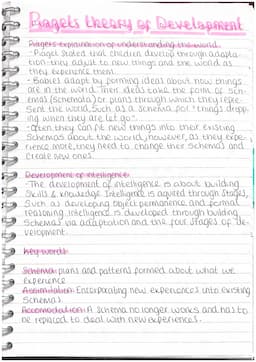 Piagets theory of Development
Piagets explanation of understanding the world
- Piaget stated that children develop through adapta-
tion - they adjust to new things and the world as
they experience them.
- Babies adapt by forming ideas about how things
are in the world. Their ideas take the form of sch-
emas (schemata) or plans through which they repre-
sent the world, such as a schema for "things dropp-
ing when they are let go"
- Often they can fit new things into their existing
Schemas about the world, however, as they expe-
rience more, they need to change their schemas and
create new ones.
Development of intelligence
- The development of intelligence is about building
Skills & knowledge. Intelligence is through stages,
Such as developing object permanence and formal
reasoning. Intelligence is developed through building
Schemas via adaptation and the four stages of De-
velopment.
Key words
Schema: plans and patterns formed about what we
experience
Assimilation: Encorporating new experiences into existing
Schemas.
Accomodation: A Schema no longer works and has to
be replaced to deal with new experiences.